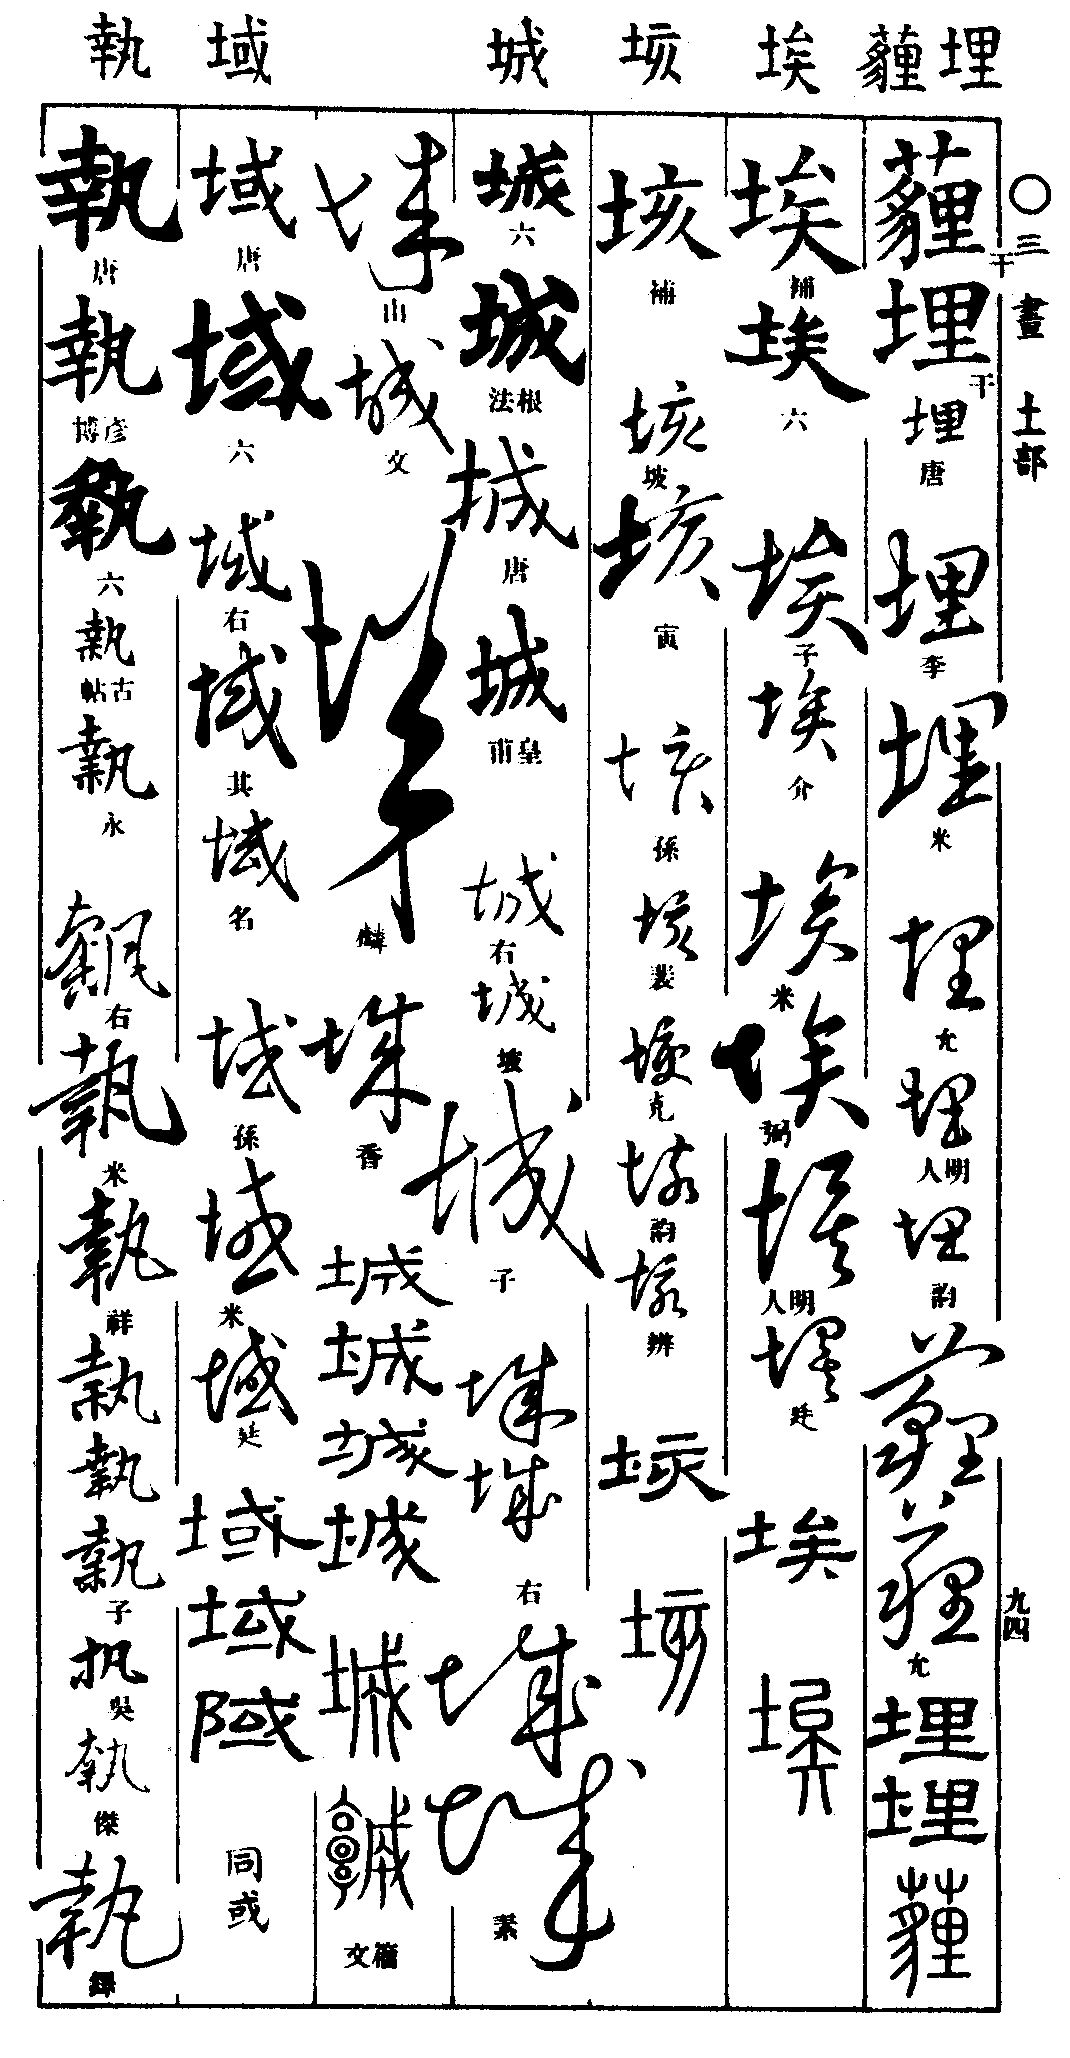 埋 薶 埃 垓 城 域 執
〇三畫 土部 九四
薶干埋干埋唐埋李埋米埋允埋明人埋韵薶薶允埋埋薶
埃補埃六埃子埃介埃米埃弼埃明人埃廷埃埃
垓補垓坡垓寅垓孫垓裴垓克垓韵垓辨垓垓
城六城根法城唐城皇甫城右城坡城子城城右城城素
城山城文城麟城香城城城城城城籀文
域唐域六域右域其域名域孫域米域廷域域域同或
執唐執彥博執六執古帖執永執右執米執祥執執執子执吳執傑執鐸